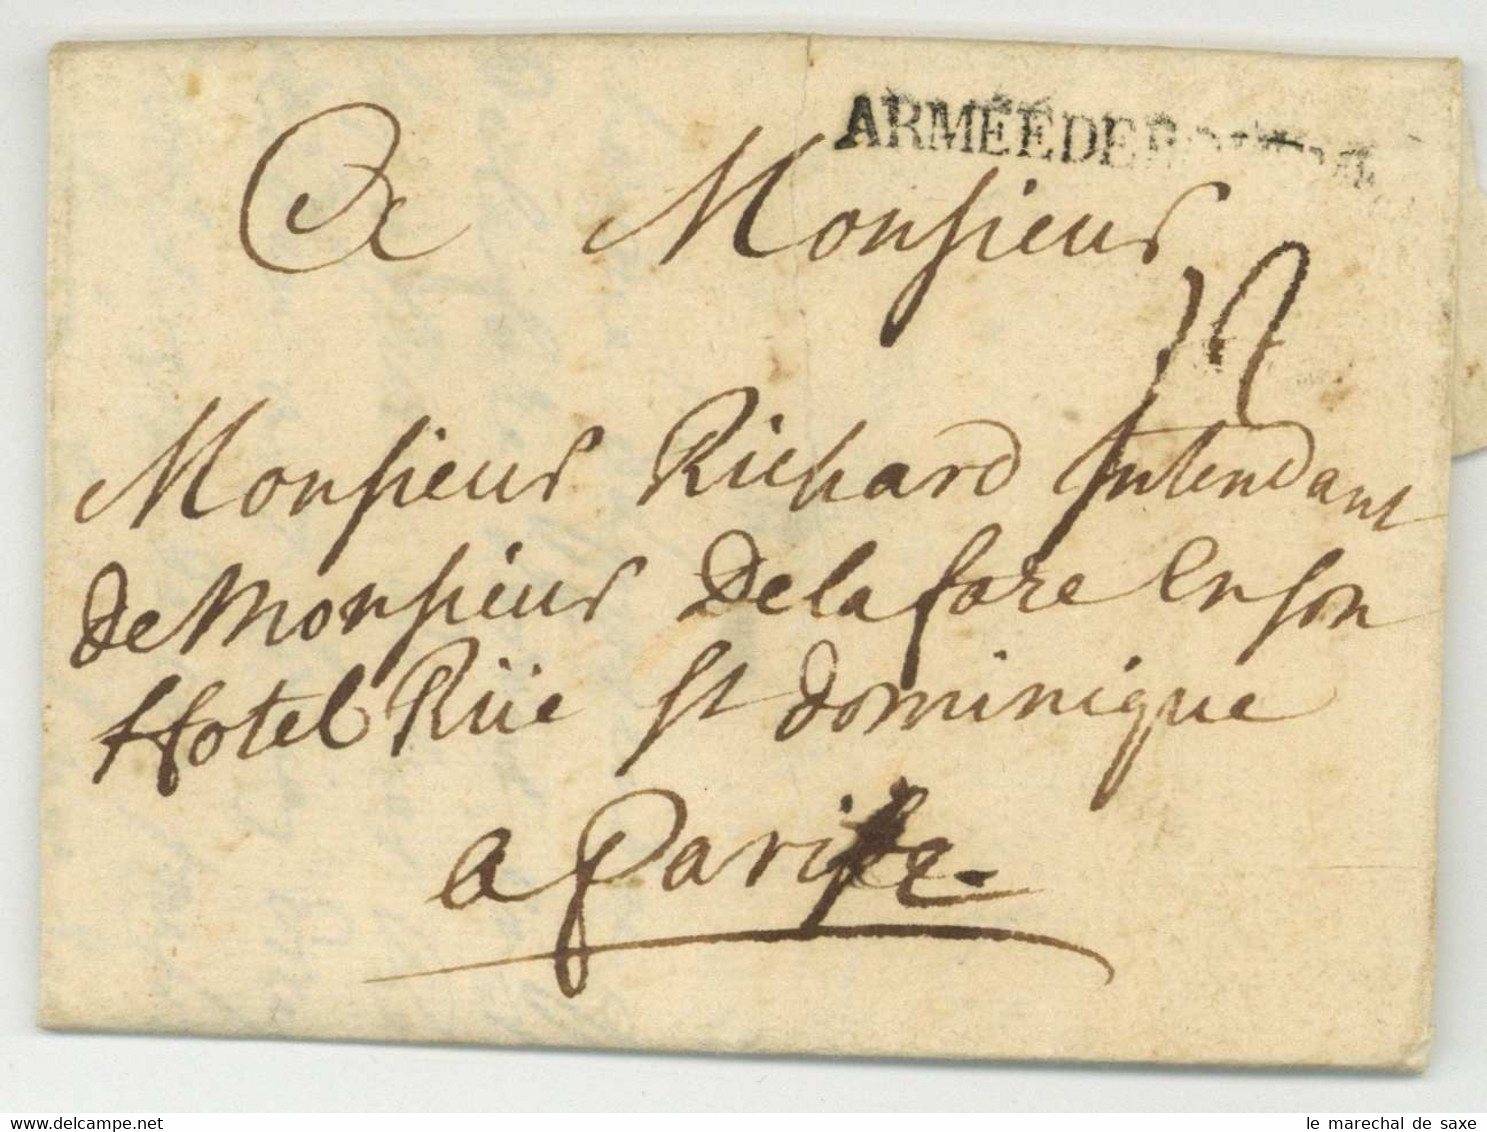 ARMÉE DE
A Monsieur
12
Monsieur Richard Intendant
de Monsieur Delafore en son
Hotel Rüe st dominique
a paris
le marechal de saxe